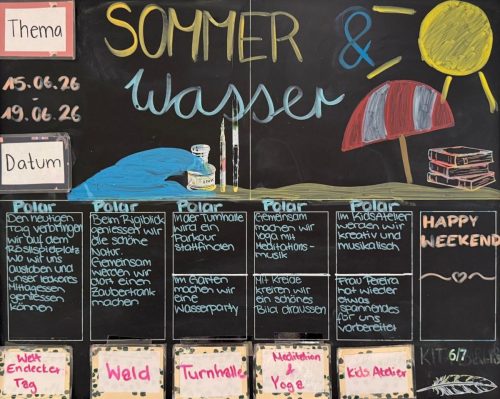 Thema
SOMMER &
Wasser
15.06.26
-
19.06.26
Datum
Polar
Den heutigen
Tag verbringen
wir auf dem
Röslispielplatz
wo wir uns
austoben und
unser leckeres
Mittagessen
geniessen
können
Polar
Beim Rigiblick
geniessen wir
die schöne
Natur.
Gemeinsam
werden wir
dort einen
Zaubertrank
machen
Polar
In der Turnhalle
wird ein
Parkour
stattfinden
Im Garten
machen wir
eine
Wasserparty
Polar
Gemeinsam
machen wir
Yoga mit
Meditations-
musik
Mit Kreide
kreiren wir
ein schönes
Bild draussen
Polar
Im KidsAtelier
werden wir
kreativ und
musikalisch
Frau Pereira
hat wieder
etwas
spannendes
für uns
vorbereitet
HAPPY
WEEKEND
Welt
Endecker
Tag
Wald
Turnhalle
Meditation
&
Yoga
Kids Atelier
KIT 6/7